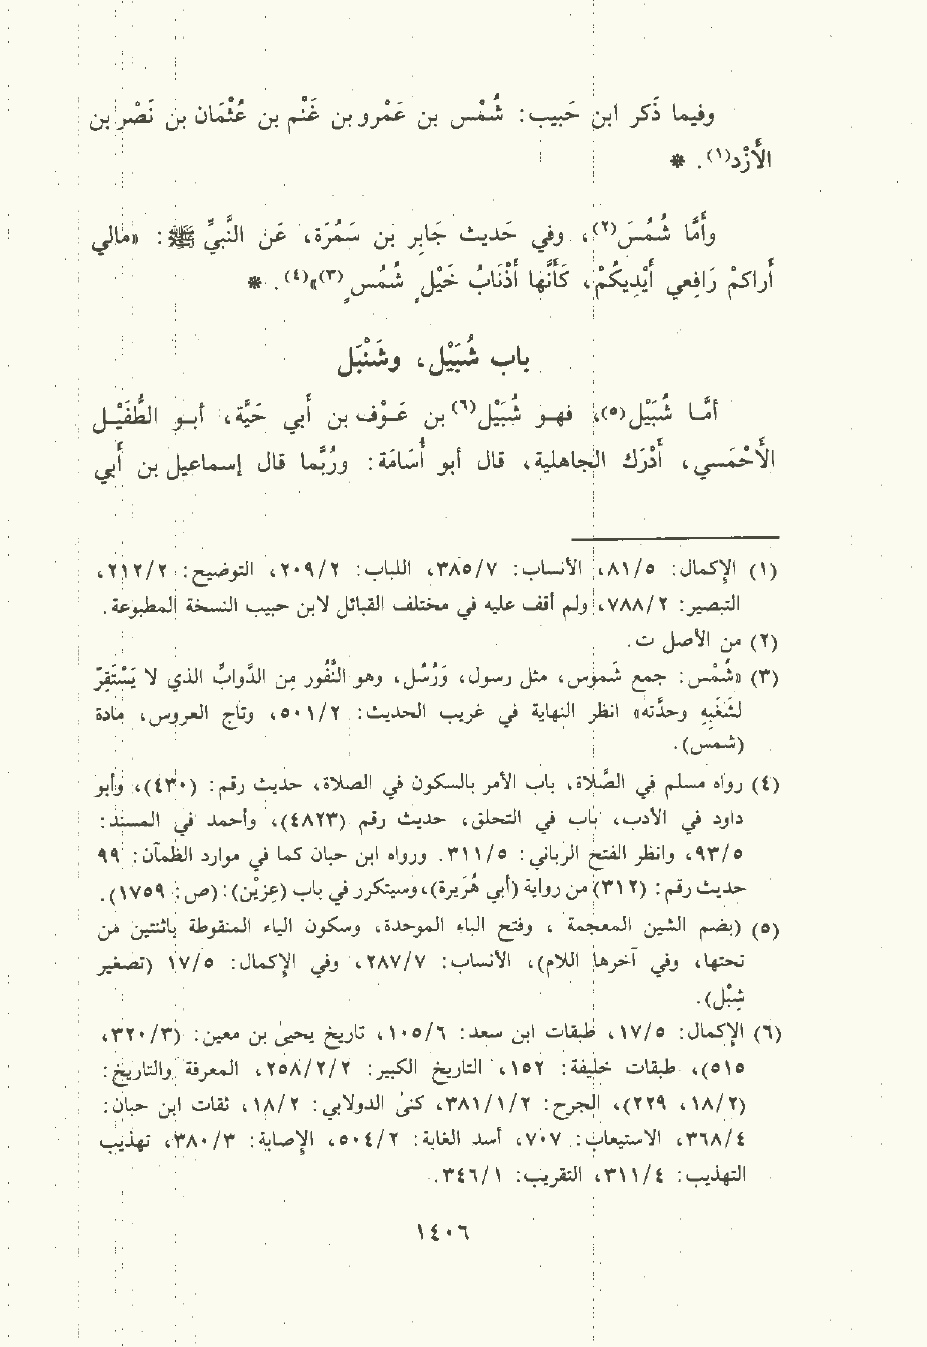 وفيما ذَكر ابن حَبيب: شُمْس بن عَمْرو بن غَنْم بن عُثْمَان بن نَصْر بن
الأَزْد(١). *
وأَمَّا شُمُسَ(٢)، وفي حَديث جَابِر بن سَمُرَة، عَن النَّبيِّ ﷺ: «مالي
أَراكمْ رَافِعي أَيْدِيكُمْ، كَأَنَّها أَذْنَابُ خَيْلٍ شُمُسٍ(٣)»(٤). *
باب شُبَيْل، وشَنْبَل
أمَّا شُبَيْل(٥)، فهو شُبَيْل(٦) بن عَوْف بن أَبي حَيَّة، أبو الطُّفَيْل
الأَحْمَسي، أَدْرَك الجاهلية، قال أبو أُسَامَة: ورُبَّما قال إسماعيل بن أَبي
(١) الإكمال: ٨١/٥، الأنساب: ٣٨٥/٧، اللباب: ٢٠٩/٢، التوضيح: ٢١٢/٢،
التبصير: ٧٨٨/٢، ولم أقف عليه في مختلف القبائل لابن حبيب النسخة المطبوعة.
(٢) من الأصل ت.
(٣) «شُمْس: جمع شَموس، مثل رسول، وَرُسُل، وهو النُّفُور مِن الدَّوابِّ الذي لا يَسْتَقِرّ
لشَغَبِهِ وحدَّته» انظر النهاية في غريب الحديث: ٥٠١/٢، وتاج العروس، مادة
(شمس).
(٤) رواه مسلم في الصَّلاة، باب الأمر بالسكون في الصلاة، حديث رقم: (٤٣٠)، وأبو
داود في الأدب، باب في التحلق، حديث رقم (٤٨٢٣)، وأحمد في المسند:
٩٣/٥، وانظر الفتح الرباني: ٣١١/٥. ورواه ابن حبان كما في موارد الظمآن: ٩٩
حديث رقم: (٣١٢) من رواية (أبي هُرَيرة)، وسيتكرر في باب (عِزيْن): (ص: ١٧٥٩).
(٥) (بضم الشين المعجمة ، وفتح الباء الموحدة، وسكون الياء المنقوطة باثنتين من
تحتها، وفي آخرها اللام)، الأنساب: ٢٨٧/٧، وفي الإكمال: ١٧/٥ (تصغير
شِبْل).
(٦) الإكمال: ١٧/٥، طبقات ابن سعد: ١٠٥/٦، تاريخ يحيىٰ بن معين: (٣٢٠/٣،
٥١٥)، طبقات خليفة: ١٥٢، التاريخ الكبير: ٢٥٨/٢/٢، المعرفة والتاريخ:
(١٨/٢، ٢٢٩)، الجرح: ٣٨١/١/٢، كنىٰ الدولابي: ١٨/٢، ثقات ابن حبان:
٣٦٨/٤، الاستيعاب: ٧٠٧، أسد الغابة: ٥٠٤/٢، الإصابة: ٣٨٠/٣، تهذيب
التهذيب: ٣١١/٤، التقريب: ٣٤٦/١.
١٤٠٦